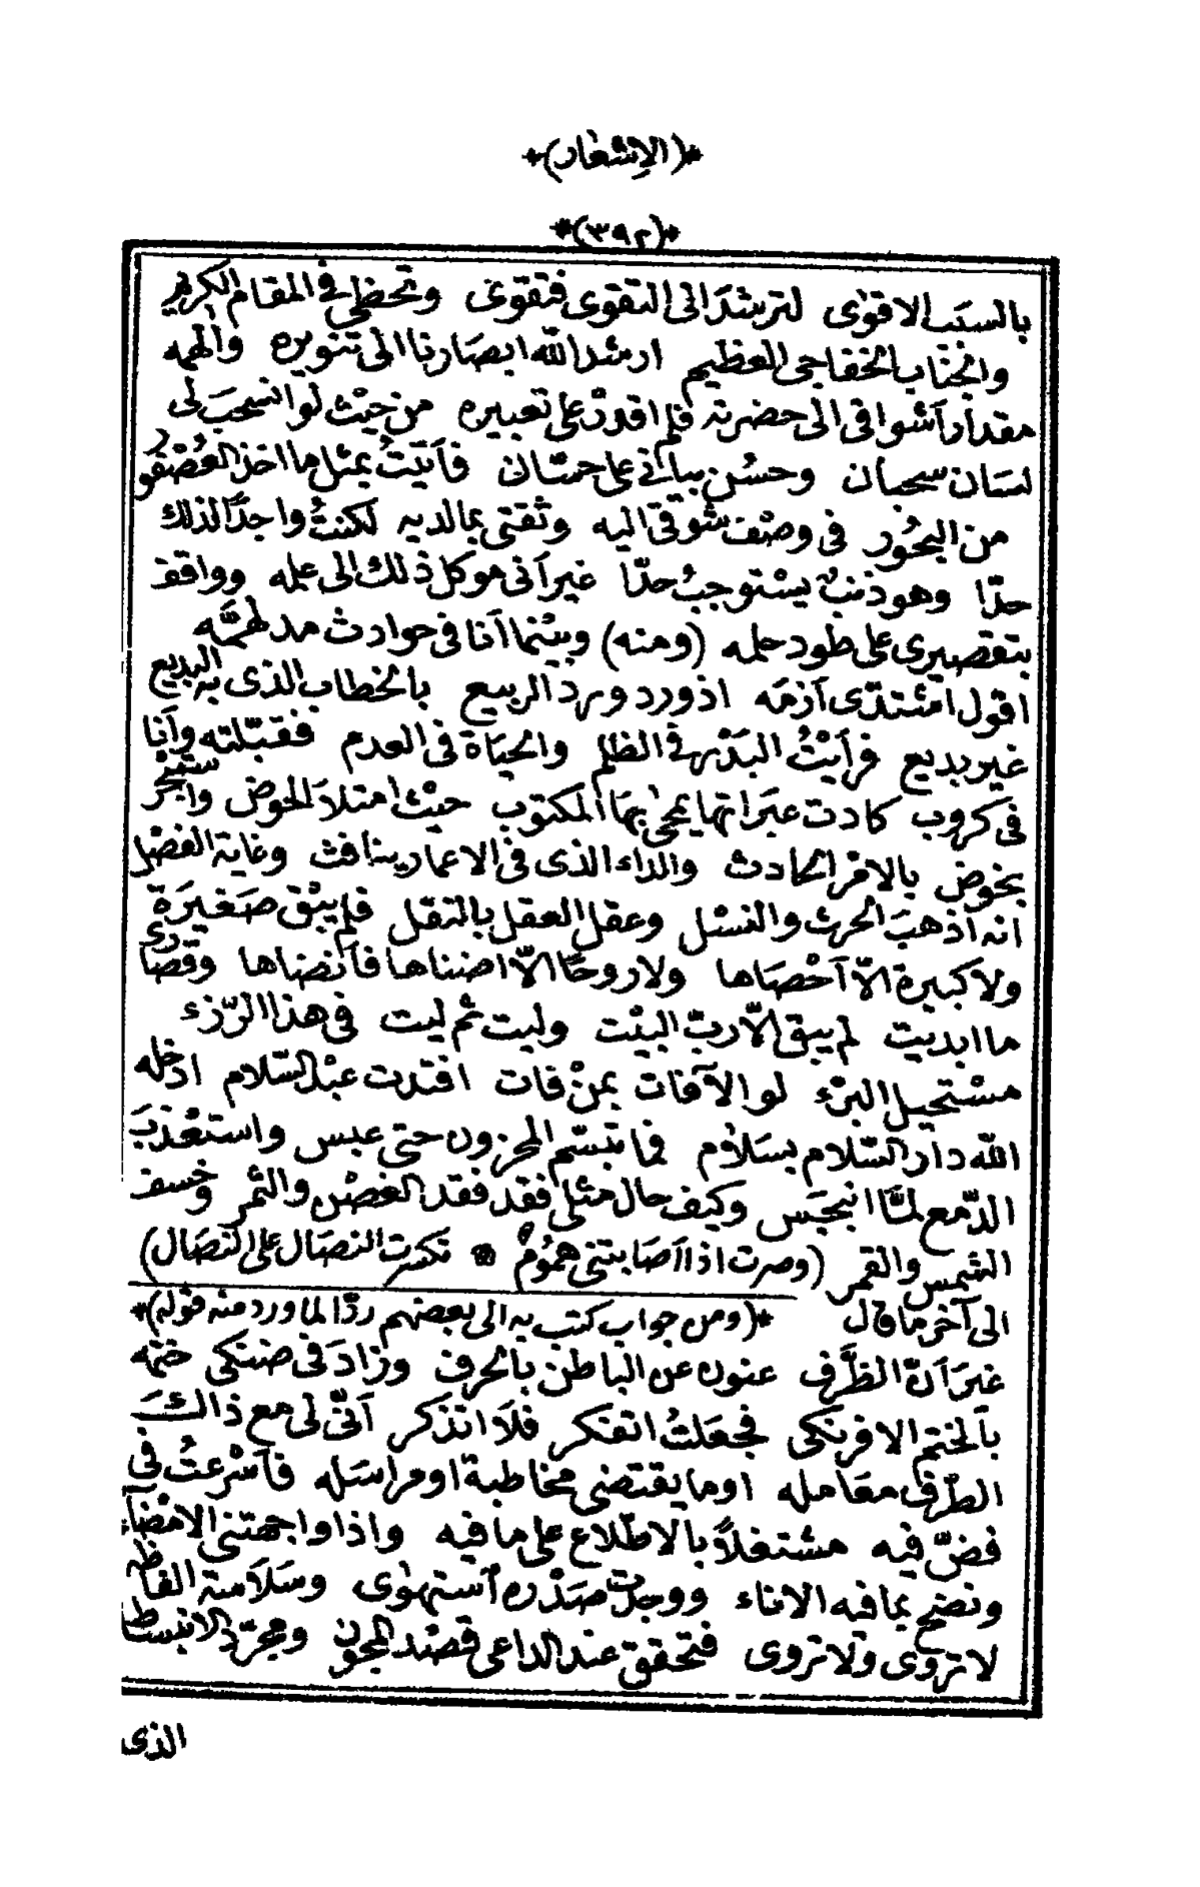 *(الاشعار)*
*(٣٩٢)*
بالسبب الاقوى لترشد الى التقوى فتقوى وتحظى فى المقام الكريم
والجناب الخفاجى العظيم ارشد الله ابصارنا الى تنويره والهمه
مقدار أشواقى الى حضرته فلم اقدر على تعبيره من حيث لو انسحب لى
لسان سحبان وحسن بيانى على حسّان فأتيت بمثل ما اخذ العصفور
من البحور فى وصف شوقى اليه وثقتى بما لديه لكنت واجدًا لذلك
حدّا وهو ذنب يستوجب حدّا غير أنى موكل ذلك الى علمه وواقف
بتقصيرى على طود حلمه (ومنه) وبينما أنا فى حوادث مدلهمّه
اقول اشتدّى أزمه اذ ورد ورد الربيع بالخطاب الذى به البديع
غير بديع فرأيت البدر فى الظلم والحياة فى العدم فقبّلته وأنا
فى كروب كادت عبراتها يمحى بها المكتوب حيث امتلأ الحوض والجر ستيج
بخوض بالامر الحادث والداء الذى فى الاعمار ينافث وغاية الفضل
انه أذهب الحرث والنسل وعقل العقل بالنقل فلم يبق صغيرة
ولا كبيرة الّا أحصاها ولا روحًا الّا اضناها فأنضاها وقصارى
ما ابديت لم يبق الّا ربّ البيت وليت ثم ليت فى هذا الرّزء
مستحيل البرء لو الآفات بمن فات افتدت عبد السّلام ادخله
الله دار السّلام بسلام فما تبسّم المحزون حتى عبس واستعذب
الدّمع لمّا انبجس وكيف حال مثلى فقد فقد الغصن والثمر وخسف
الشمس والقمر (وصرت اذا اصابتنى هموم * تكسرت النصال على النصال)
الى آخر ما قال *(ومن جواب كتب به الى بعضهم ردّا لما ورد منه قوله)*
غير أنّ الظّرف عنون عن الباطن بالحرف وزاد فى ضنكى ختمه
بالختم الافرنكى فجعلت اتفكر فلا اتذكر أنّى لى مع ذلك
الطّرف معامله او ما يقتضى مخاطبة او مراسله فأسرعت فى
فضّ فيه مشتغلًا بالاطّلاع على ما فيه واذا واجهتنى الامضاء
ونضح بما فيه الاناء ووجدت صدره أستهوى وسلاسة الفاظه
لا تروى ولا تروى فتحقق عند الداعى قصد المجون ومجرّد الانبساط
الذى